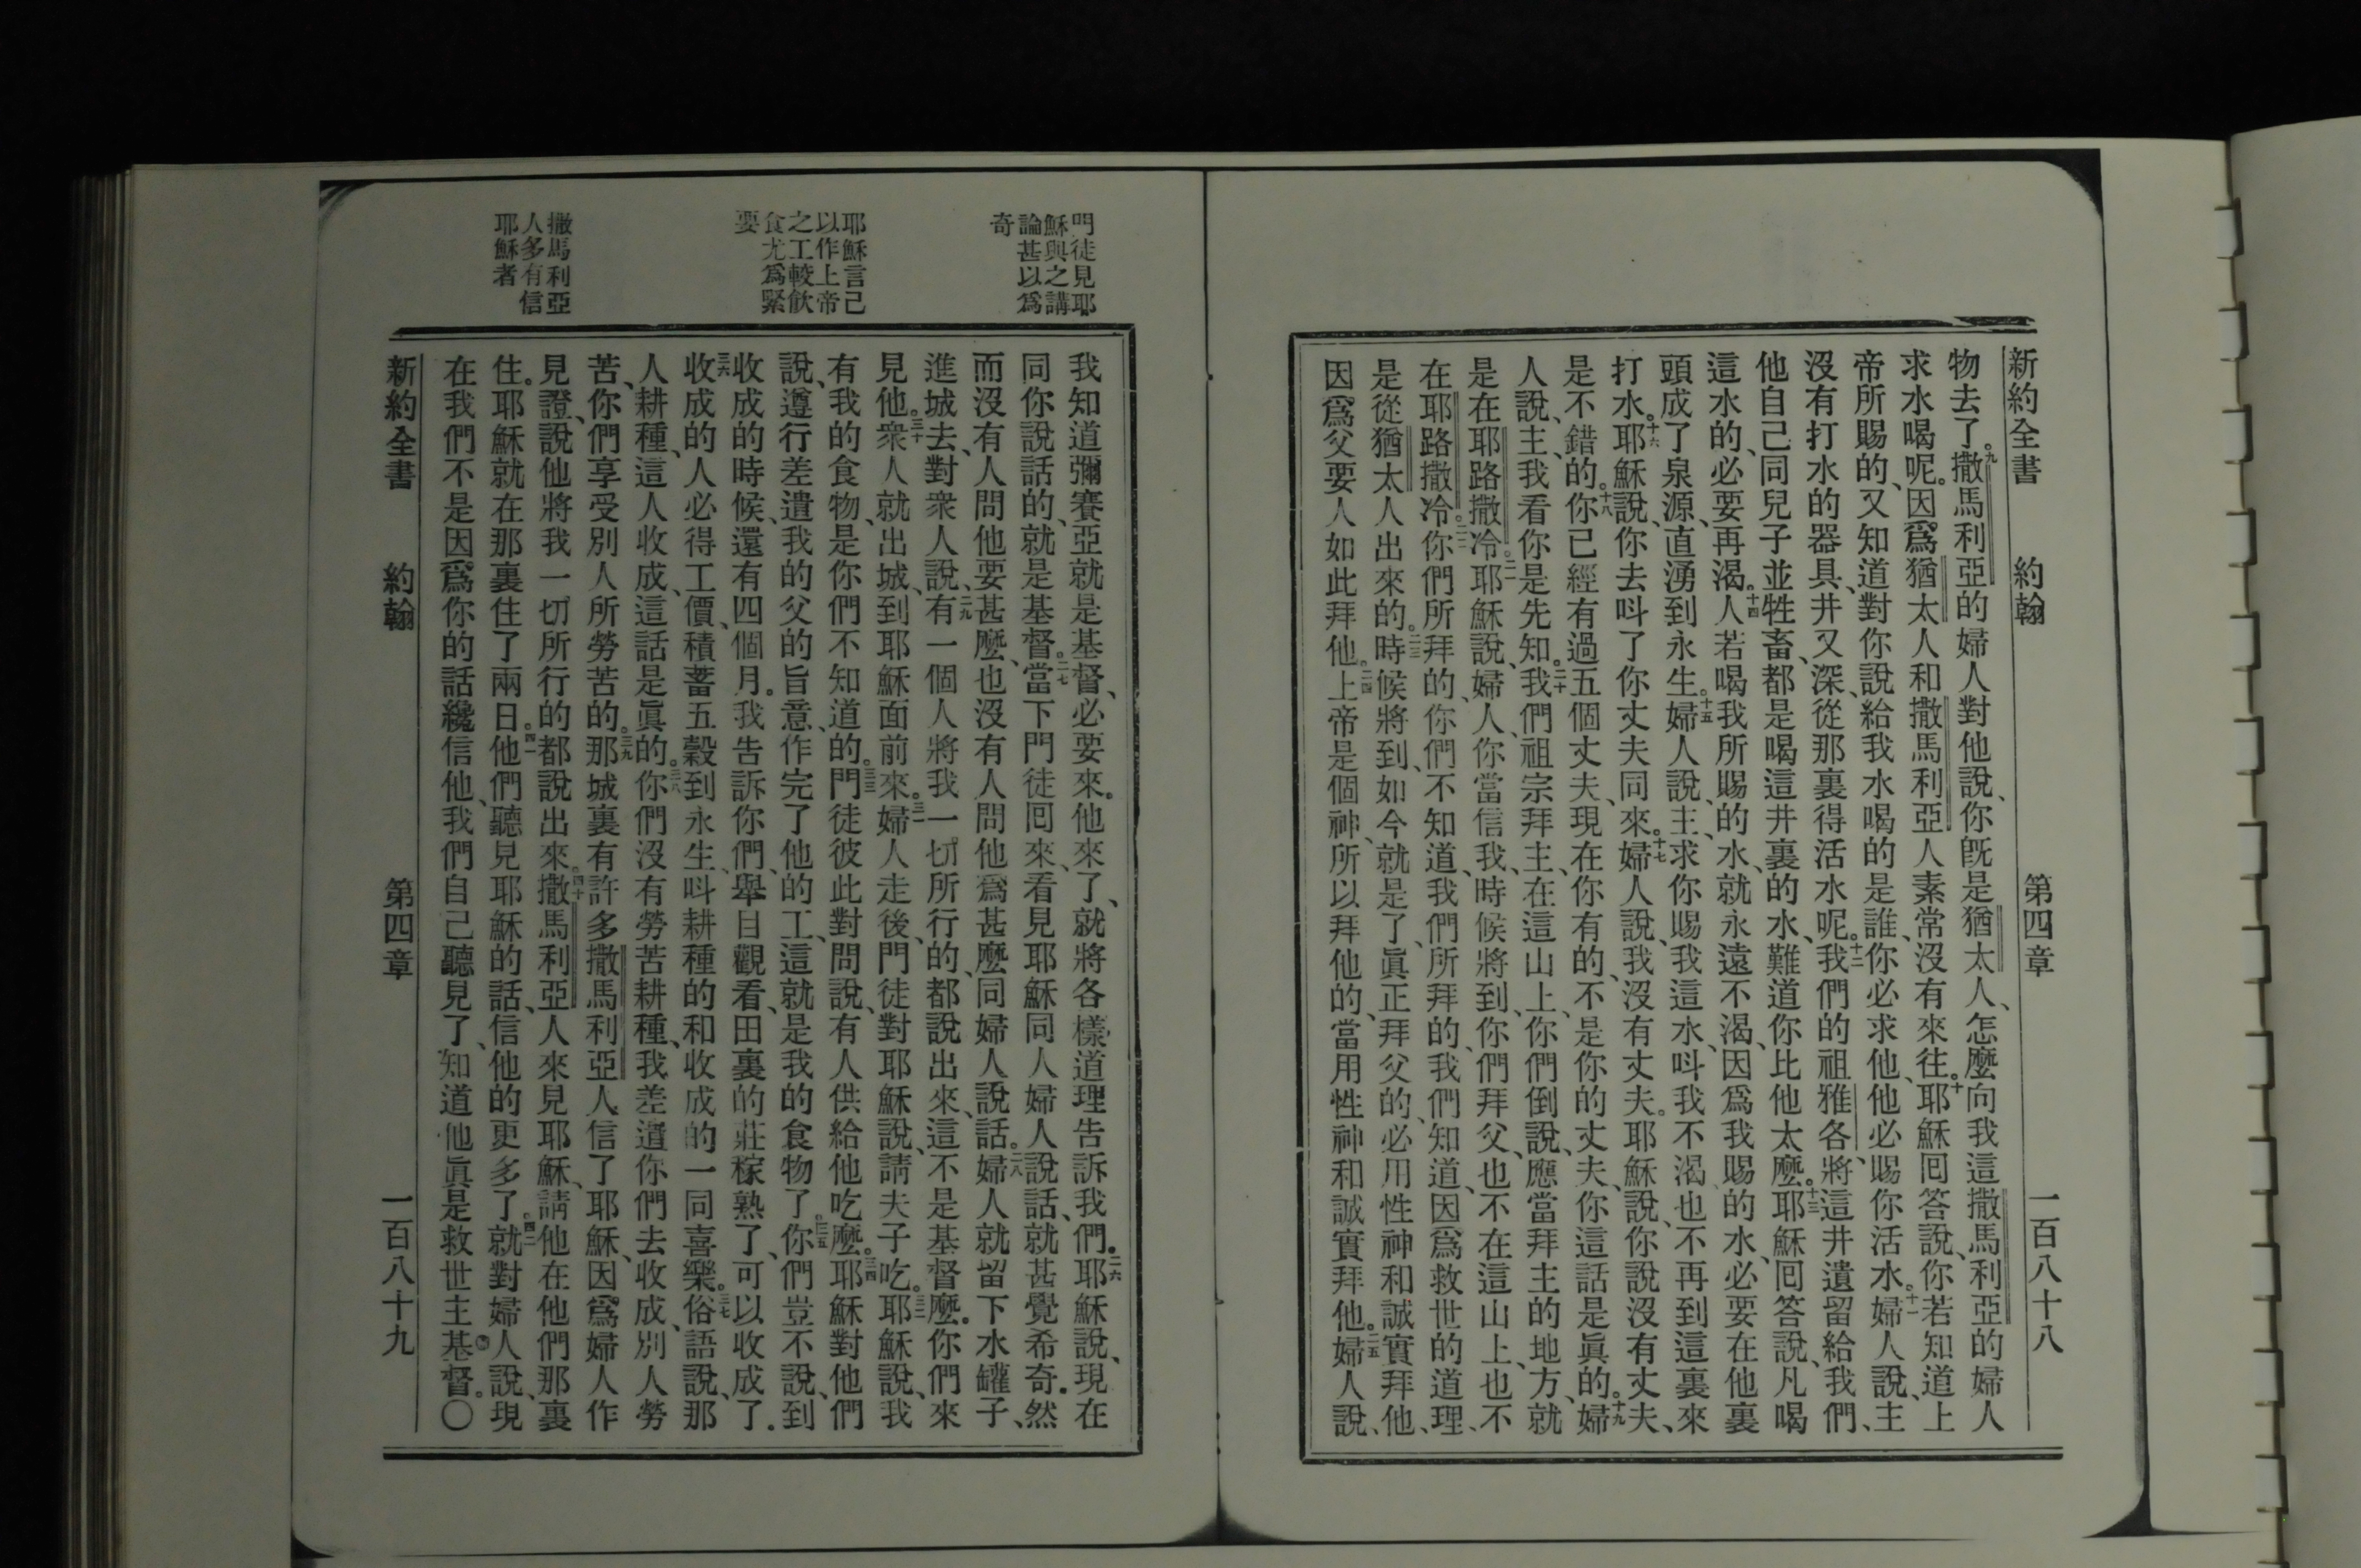 新約全書 約翰 第四章 一百八十八
物去了。九撒馬利亞的婦人對他說、你旣是猶太人、怎麼向我這撒馬利亞的婦人
求水喝呢。因爲猶太人和撒馬利亞人素常沒有來往。十耶穌囘答說、你若知道上
帝所賜的、又知道對你說給我水喝的是誰、你必求他、他必賜你活水。十一婦人說、主
沒有打水的器具、井又深、從那裏得活水呢。十二我們的祖雅各、將這井遺留給我們、
他自己同兒子並牲畜、都是喝這井裏的水、難道你比他太麼。十三耶穌囘答說、凡喝
這水的、必要再渴。十四人若喝我所賜的水、就永遠不渴、因爲我賜的水、必要在他裏
頭成了泉源、直湧到永生。十五婦人說、主、求你賜我這水、呌我不渴、也不再到這裏來
打水。十六耶穌說、你去呌了你丈夫同來。十七婦人說、我沒有丈夫。耶穌說、你說沒有丈夫、
是不錯的。十八你已經有過五個丈夫、現在你有的、不是你的丈夫、你這話是眞的。十九婦
人說、主、我看你是先知。二十我們祖宗拜主、在這山上、你們倒說、應當拜主的地方、就
是在耶路撒冷。二一耶穌說、婦人、你當信我、時候將到、你們拜父、也不在這山上、也不
在耶路撒冷。二二你們所拜的、你們不知道、我們所拜的、我們知道、因爲救世的道理、
是從猶太人出來的。二三時候將到、如今就是了、眞正拜父的、必用性神和誠實拜他、
因爲父要人如此拜他。二四上帝是個神、所以拜他的、當用性神和誠實拜他。二五婦人說、
門徒見耶
穌與之講
論甚以爲
奇
耶穌言己
以作上帝
之工較飮
食尤爲緊
要
撒馬利亞
人多有信
耶穌者
我知道彌賽亞就是基督、必要來。他來了、就將各樣道理告訴我們。二六耶穌說、現在
同你說話的、就是基督。二七當下門徒囘來、看見耶穌同人婦人說話、就甚覺希奇。然
而沒有人問他要甚麼、也沒有人問他爲甚麼同婦人說話。二八婦人就留下水罐子、
進城去、對衆人說、二九有一個人將我一切所行的、都說出來、這不是基督麼。你們來
見他。三十衆人就出城、到耶穌面前來。三一婦人走後、門徒對耶穌說、請夫子吃。三二耶穌說、我
有我的食物、是你們不知道的。三三門徒彼此對問說、有人供給他吃麼。三四耶穌對他們
說、遵行差遣我的父的旨意、作完了他的工、這就是我的食物了。三五你們豈不說、到
收成的時候、還有四個月。我告訴你們、舉目觀看、田裏的莊稼熟了、可以收成了。
三六收成的人必得工價、積蓄五穀到永生、呌耕種的和收成的一同喜樂。三七俗語說、那
人耕種、這人收成、這話是眞的。三八你們沒有勞苦耕種、我差遣你們去收成、別人勞
苦、你們享受別人所勞苦的。三九那城裏有許多撒馬利亞人信了耶穌、因爲婦人作
見證、說他將我一切所行的都說出來。四十撒馬利亞人來見耶穌、請他在他們那裏
住。耶穌就在那裏住了兩日。四一他們聽見耶穌的話、信他的更多了。四二就對婦人說、現
在我們不是因爲你的話纔信他、我們自己聽見了、知道他眞是救世主基督。〇
新約全書 約翰 第四章 一百八十九